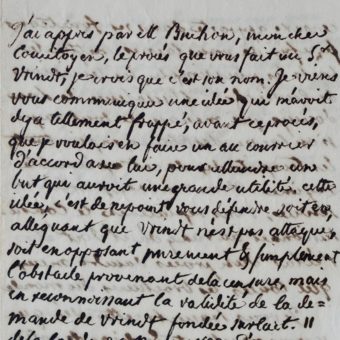 J'ai appris par M Buchon, mon cher
Concitoyen, le procès que vous fait un Sr.
Vrindt, je crois que c'est son nom. Je viens
vous communiquer une idée qui m'avoit
deja tellement frappé, avant ce procès,
que je voulois en faire un au courrier
d'accord avec lui, pour atteindre un
but qui auroit une grande utilité. cette
idée, c'est de ne point vous défendre soit en
alleguant que Vrindt n'est pas attaqué,
soit en opposant purement & simplement
l'obstacle provenant de la censure, mais
en reconnoissant la validité de la de-
mande de Vrindt fondée sur l'art. 11
de la